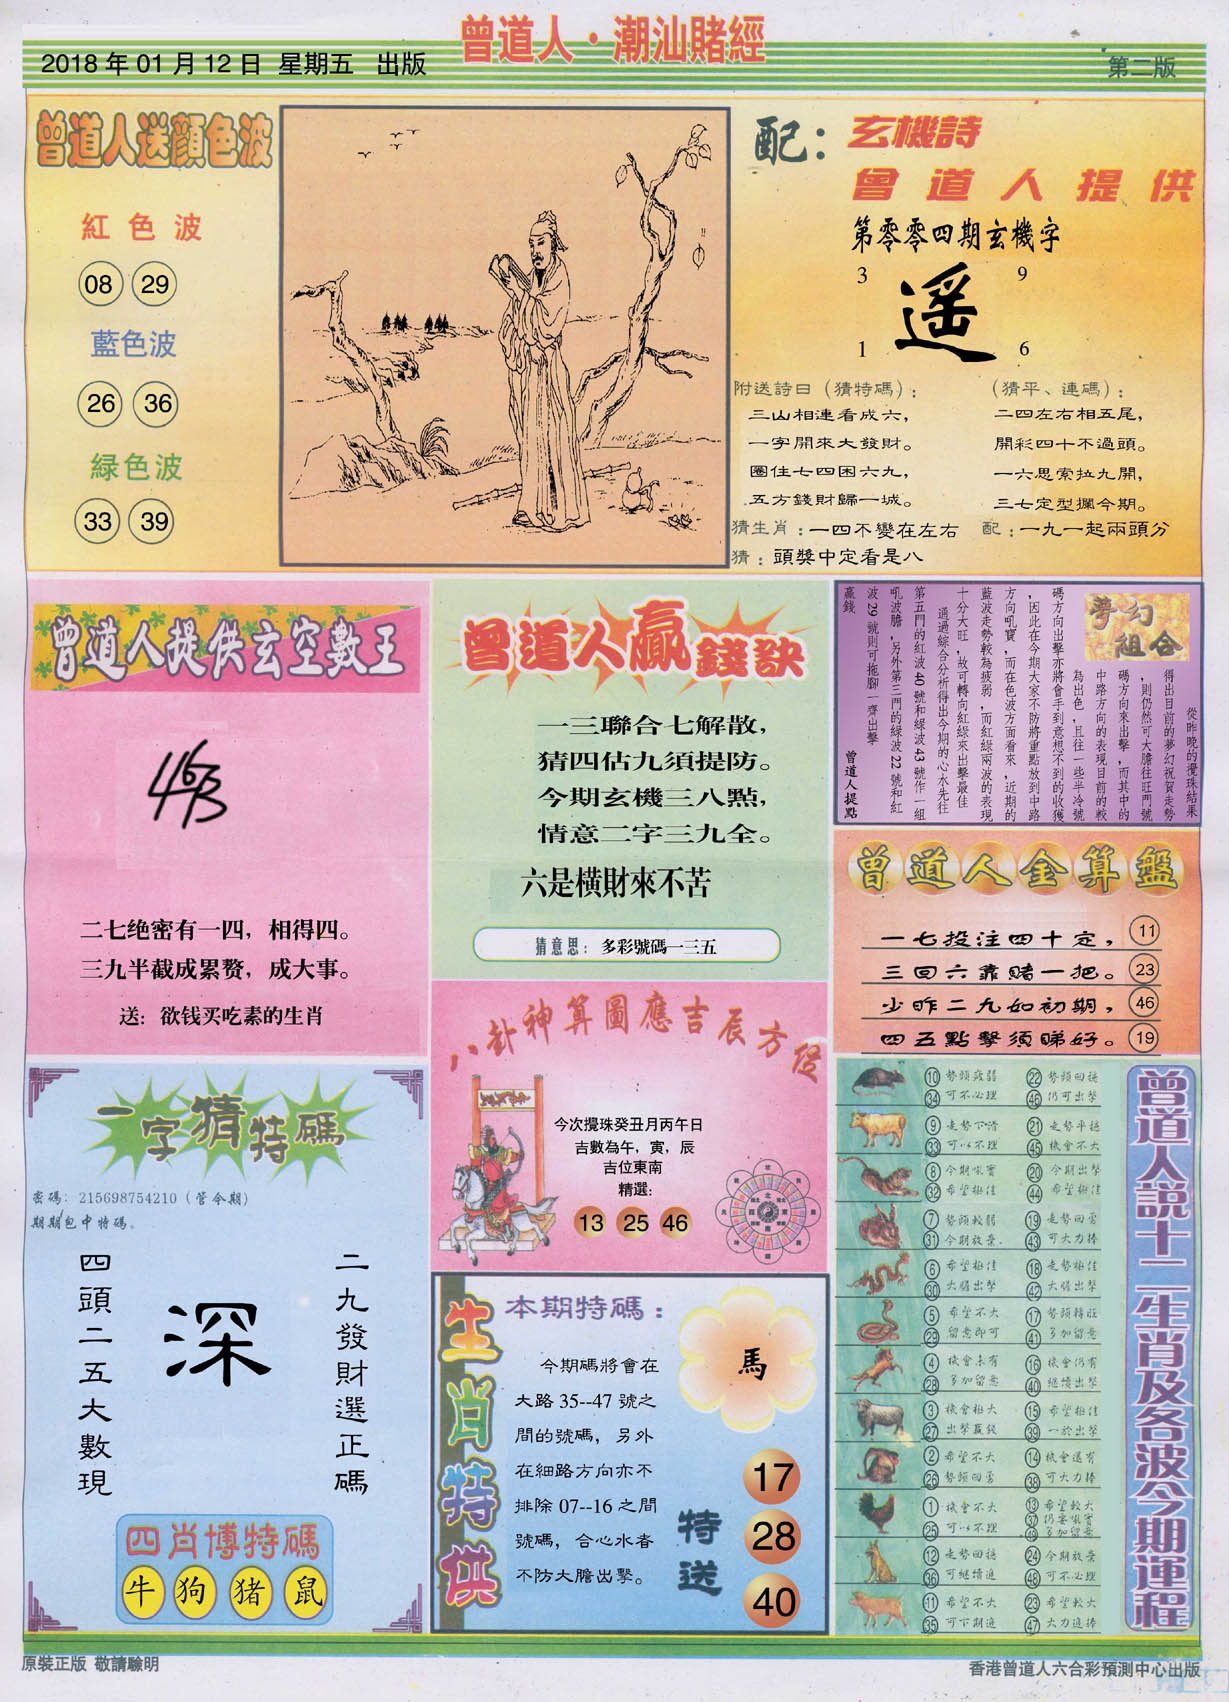 曾道人·潮汕賭經
2018年01月12日 星期五 出版
第二版
曾道人送顏色波
紅色波
08 29
藍色波
26 36
緑色波
33 39
配：
玄機詩
曾道人提供
第零零四期玄機字
3 9
遥
1 6
附送詩曰（猜特碼）：
三山相連看成六，
一字開來大發財。
圈住七四困六九，
五方錢財歸一城。
（猜平、連碼）：
二四左右相五尾，
開彩四十不過頭。
一六思索拉九開，
三七定型攔今期。
猜生肖：一四不變在左右
配：一九一起兩頭分
猜：頭獎中定看是八
曾道人提供玄空數王
二七绝密有一四，相得四。
三九半截成累赘，成大事。
送：欲钱买吃素的生肖
曾道人贏錢訣
一三聯合七解散，
猜四估九須提防。
今期玄機三八點，
情意二字三九全。
六是橫財來不苦
猜意思：多彩號碼一三五
夢幻組合
從昨晚的攪珠結果
得出目前的夢幻祝賀走勢
，則仍然可大膽往旺門號
碼方向來出擊，而其中的
中路方向的表現目前的較
為出色，且往一些半冷號
碼方向出擊亦將會手到意想不到的收獲
，因此在今期大家不防將重點放到中路
方向吼寶，而在色波方面看來，近期的
藍波走勢較為疲弱，而紅綠兩波的表現
十分大旺，故可轉向紅綠來出擊最佳
通過綜合分析得出今期的心水先往
第五門的紅波40號和绿波43號作一組
吼波膽，另外第三門的綠波22號和紅
波29號則可拖腳一齊出擊
贏錢
曾道人提點
曾道人金算盤
一七投注四十定， 11
三回六靠賭一把。 23
少昨二九如初期， 46
四五點擊須睇好。 19
八卦神算圖應吉辰方位
今次攪珠癸丑月丙午日
吉數為午，寅，辰
吉位東南
精選：
13 25 46
一字猜特碼
密碼：215698754210（管今期）
期期包中特碼。
二九發財選正碼
深
四頭二五大數現
四肖博特碼
牛 狗 猪 鼠
生肖特供
本期特碼：
今期碼將會在
大路35--47號之
間的號碼，另外
在細路方向亦不
排除07--16之間
號碼，合心水者
不防大膽出擊。
馬
特送
17
28
40
曾道人説十二生肖及各波今期運程
10 勢頭疲弱 22 勢頭回穩
34 可不必理 46 仍可出擊
9 走勢下滑 21 走勢平穩
33 可以不理 45 機會不大
8 今期吼寶 20 今期出擊
32 希望極佳 44 希望極佳
7 勢頭較弱 19 走勢回勇
31 今期放棄 43 可大力捧
6 希望極佳 18 走勢極佳
30 大膽出擊 42 大膽出擊
5 希望不大 17 勢頭轉旺
29 留意即可 41 多加留意
4 機會未有 16 機會仍有
28 多加留意 40 繼續出擊
3 機會極大 15 希望極佳
27 出擊贏錢 39 一於出擊
2 希望不大 14 機會還有
26 勢頭回勇 38 可大力捧
1 機會不大 13 希望較大
25 可以不理 37 仍要吼實
49 多加留意
12 走勢回穩 24 今期放棄
36 可繼續追 48 可不必理
11 希望不大 23 希望較大
35 可下期追 47 大力追捧
原裝正版 敬請驗明
香港曾道人六合彩預測中心出版